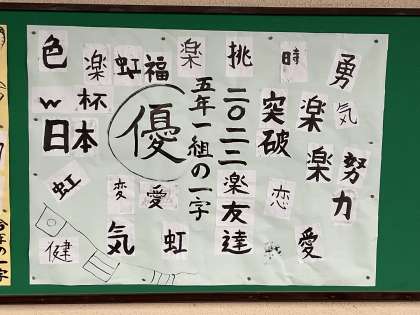 色
楽
虹
福
楽
挑
時
勇
気
w杯
日本
優
二〇二二
五年一組の一字
突破
楽
楽
努力
虹
変
愛
楽
友達
恋
健
気
虹
愛
の一字